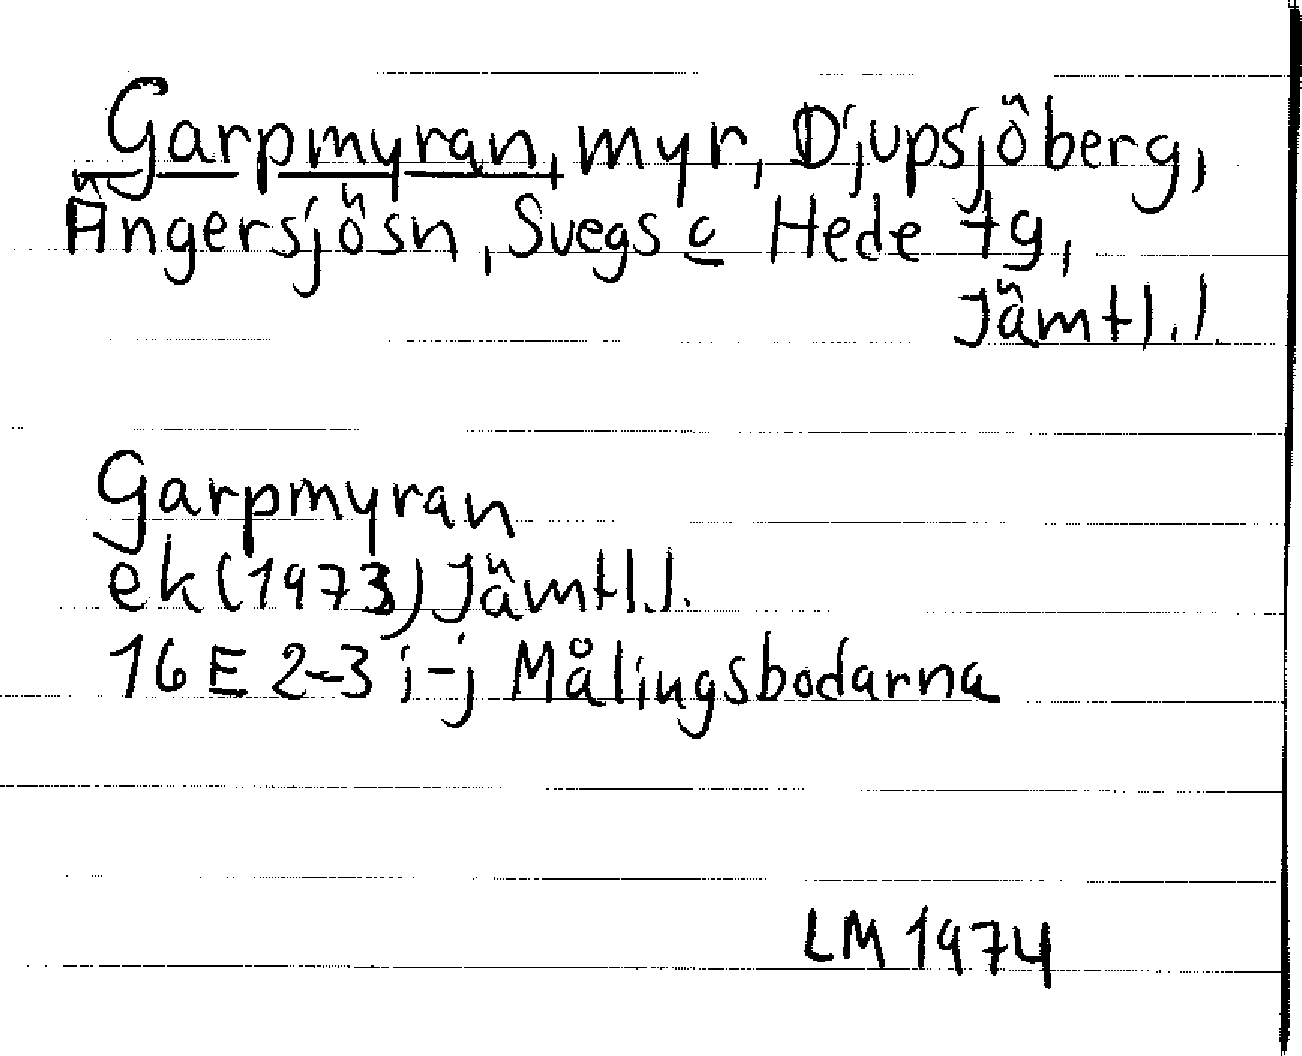 Garpmyran, myr, Djupsjöberg,
Ängersjösn, Svegs o Hede tg,
Jämtl.l.
Garpmyran
ek (1973) Jämtl.l.
16 E 2-3 i-j Målingsbodarna
LM 1974